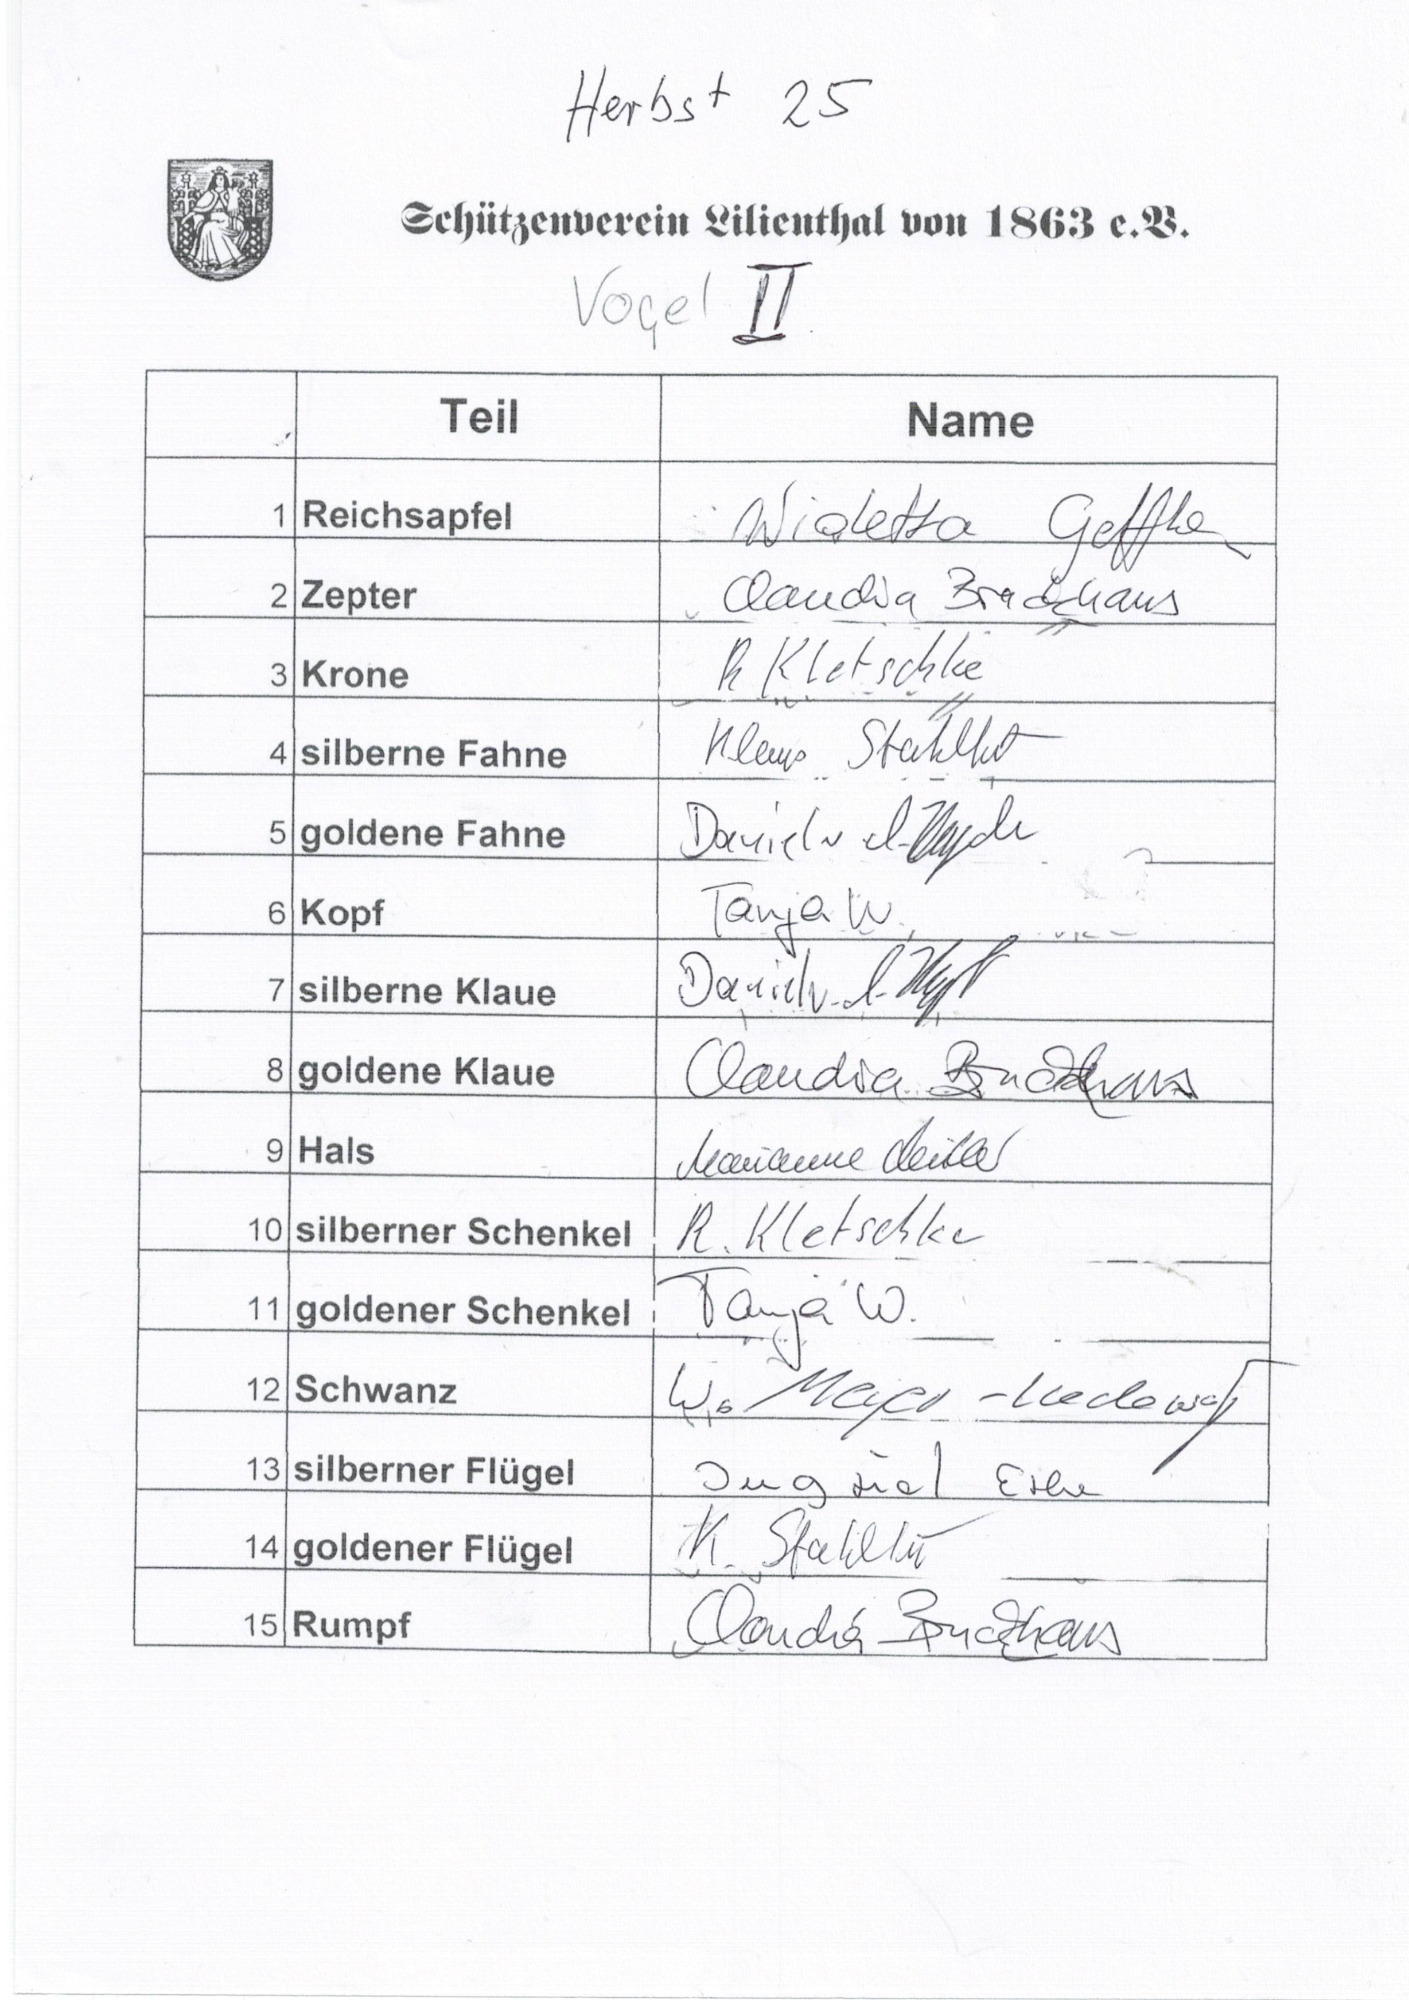 Herbst 25
Schützenverein Lilienthal von 1863 e.V.
Vogel II
Teil Name
1 Reichsapfel Wioletta Geffken
2 Zepter Claudia Brackhaus
3 Krone R Kletschke
4 silberne Fahne Klaus Stahlhut
5 goldene Fahne Daniel v. d.
6 Kopf Tanja W.
7 silberne Klaue Daniel v. d.
8 goldene Klaue Claudia
9 Hals Marianne
10 silberner Schenkel R. Kletschke
11 goldener Schenkel Tanja W.
12 Schwanz W. Meyer
13 silberner Flügel
14 goldener Flügel K. Stahlhut
15 Rumpf Claudia